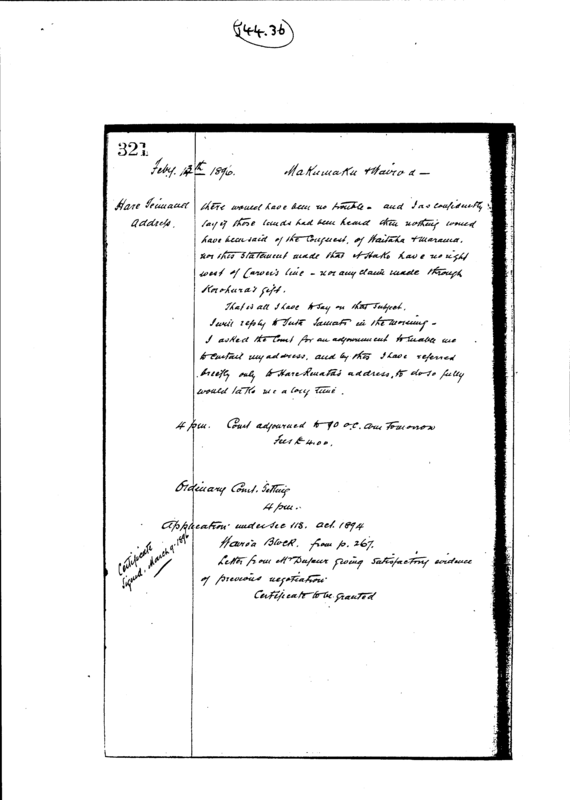 J44.36
321
Feby. 12th 1896. Makumaku & Wairoa —
Hare Teimana there would have been no trouble - and I as confidently
address. say if those lands had been heard then nothing would
have been said of the Conquest, of Waitaha & Marama.
nor this statement made that N'Hako have no right
west of Carver's line - nor any claim made through
Korohura's gift.
That is all I have to say on that subject.
I will reply to Jamati in the morning -
I asked the Court for an adjournment to enable me
to curtail my address, and by this I have referred
briefly only to Hare Renata's address, to do so fully
would take me a long time.
4 pm. Court adjourned to 10 o.c. am tomorrow
Fees £4.00.
Ordinary Court Sitting
4 pm.
Application under sec 118. act. 1894
Certificate signed. March 9. 1896
Block. from p. 267.
Letter from Mr Dufaur giving satisfactory evidence
of previous negotiation
Certificate to be granted